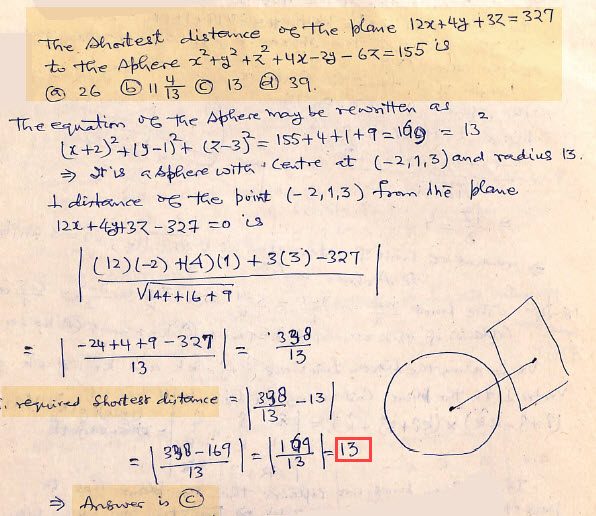 The shortest distance of the plane 12x+4y+3z=327
to the sphere x²+y²+z²+4x-2y-6z=155 is
(a) 26 (b) 11 4/13 (c) 13 (d) 39.
The equation of the sphere may be rewritten as
(x+2)²+(y-1)²+(z-3)²=155+4+1+9=169=13²
⇒ It is a sphere with centre at (-2,1,3) and radius 13.
⊥ distance of the point (-2,1,3) from the plane
12x+4y+3z-327=0 is
| (12)(-2)+(4)(1)+3(3)-327 / √144+16+9 |
= | -24+4+9-327 / 13 | = 338/13
∴ required shortest distance = | 338/13 - 13 |
= | 338-169 / 13 | = | 169/13 | = 13
⇒ Answer is (c)